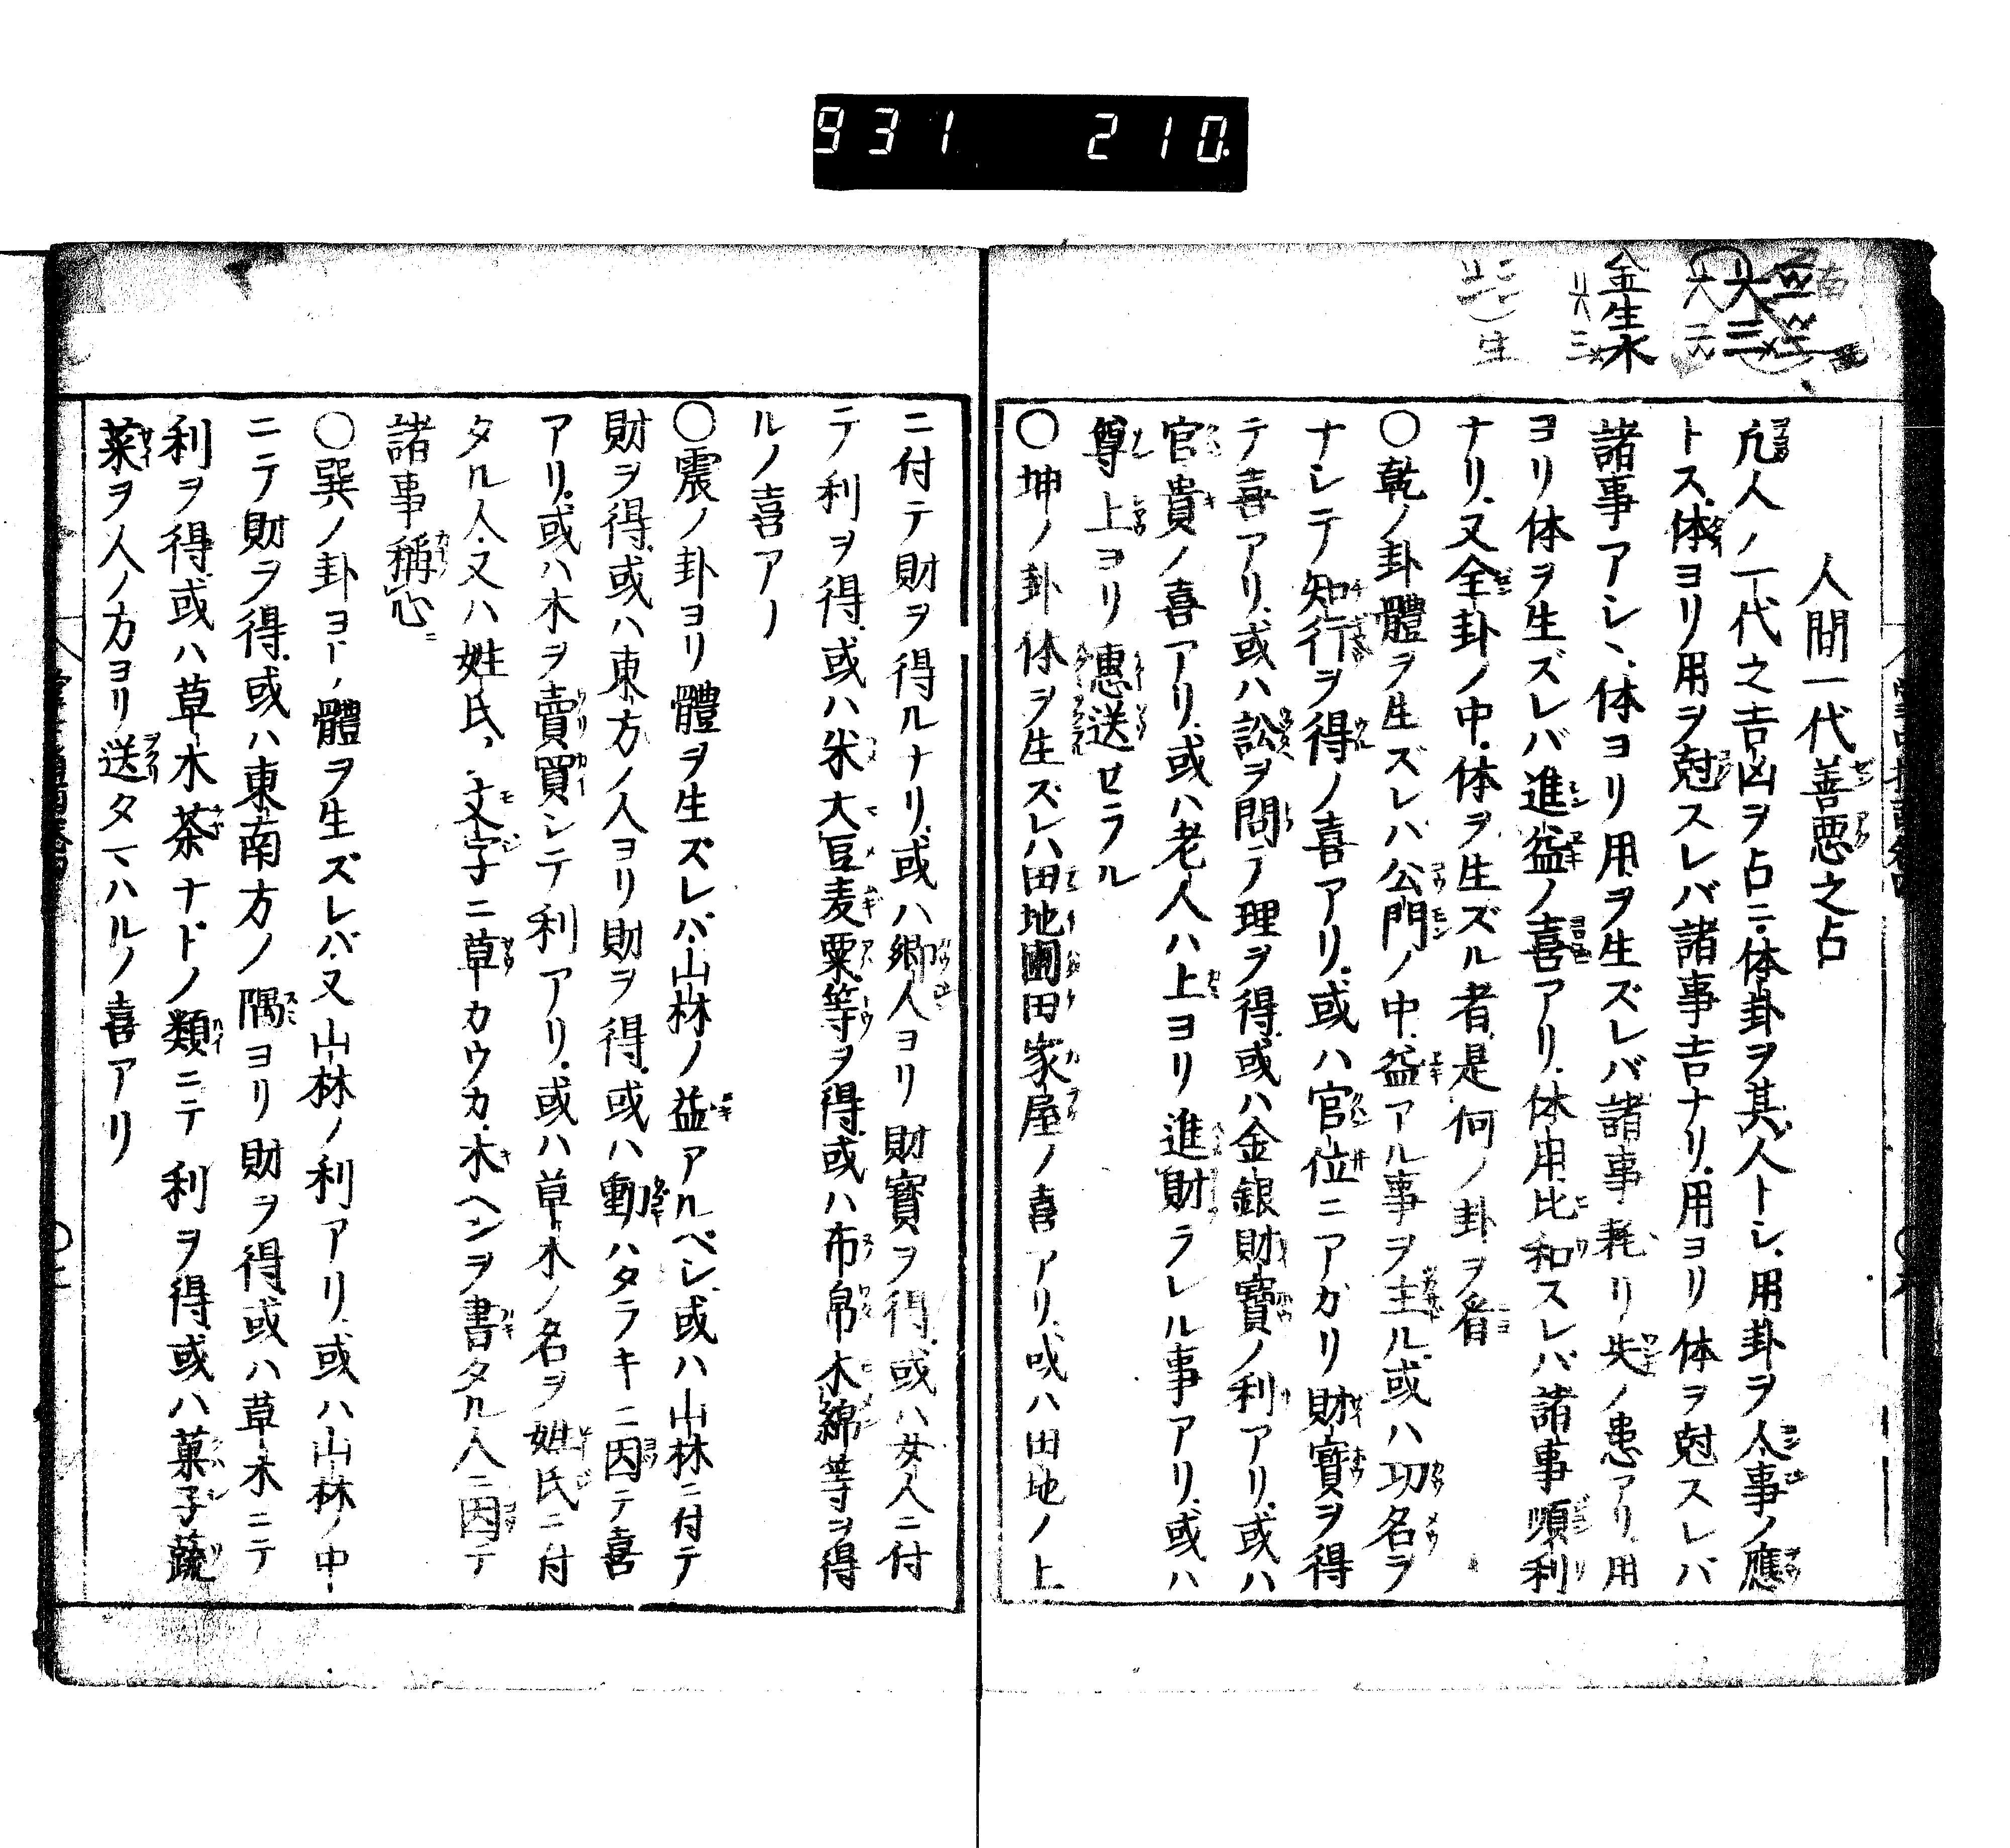 931 210
金生水
生
人間一代善悪之占
凢人ノ一代之吉凶ヲ占ニ体卦ヲ其人トシ用卦ヲ人事ノ應
トス体ヨリ用ヲ尅スレバ諸事吉ナリ用ヨリ体ヲ尅スレバ
諸事アシヽ体ヨリ用ヲ生ズレバ諸事耗リ失ノ患アリ用
ヨリ体ヲ生ズレバ進益ノ喜アリ体用比和スレバ諸事順利
ナリ又全卦ノ中体ヲ生ズル者是何ノ卦ヲ看
〇乾ノ卦體ヲ生ズレハ公門ノ中益アル事ヲ主ル或ハ功名ヲ
ナシテ知行ヲ得ノ喜アリ或ハ官位ニアガリ財寳ヲ得
テ喜アリ或ハ訟ヲ問テ理ヲ得或ハ金銀財寳ノ利アリ或ハ
官貴ノ喜アリ或ハ老人ハ上ヨリ進財ラレル事アリ或ハ
尊上ヨリ惠送せラル
〇坤ノ卦体ヲ生ズレハ田地圃田家屋ノ喜アリ或ハ田地ノ上
ニ付テ財ヲ得ルナリ或ハ郷人ヨリ財寳ヲ得或ハ女人ニ付
テ利ヲ得或ハ米大豆麦粟等ヲ得或ハ布帛木綿等ヲ得
ルノ喜アリ
〇震ノ卦ヨリ體ヲ生ズレバ山林ノ益アルベシ或ハ山林ニ付テ
財ヲ得或ハ東方ノ人ヨリ財ヲ得或ハ動ハタラキニ因テ喜
アリ或ハ木ヲ賣買シテ利アリ或ハ草木ノ名ヲ姓氏ニ付
タル人又ハ姓氏ノ文字ニ草カウカ木ヘンヲ書タル人ニ因テ
諸事稱心
〇巽ノ卦ヨリ體ヲ生ズレバ又山林ノ利アリ或ハ山林ノ中
ニテ財ヲ得或ハ東南方ノ隅ヨリ財ヲ得或ハ草木ニテ
利ヲ得或ハ草木茶ナドノ類ニテ利ヲ得或ハ菓子蔬
菜ヲ人ノ方ヨリ送タマハルノ喜アリ